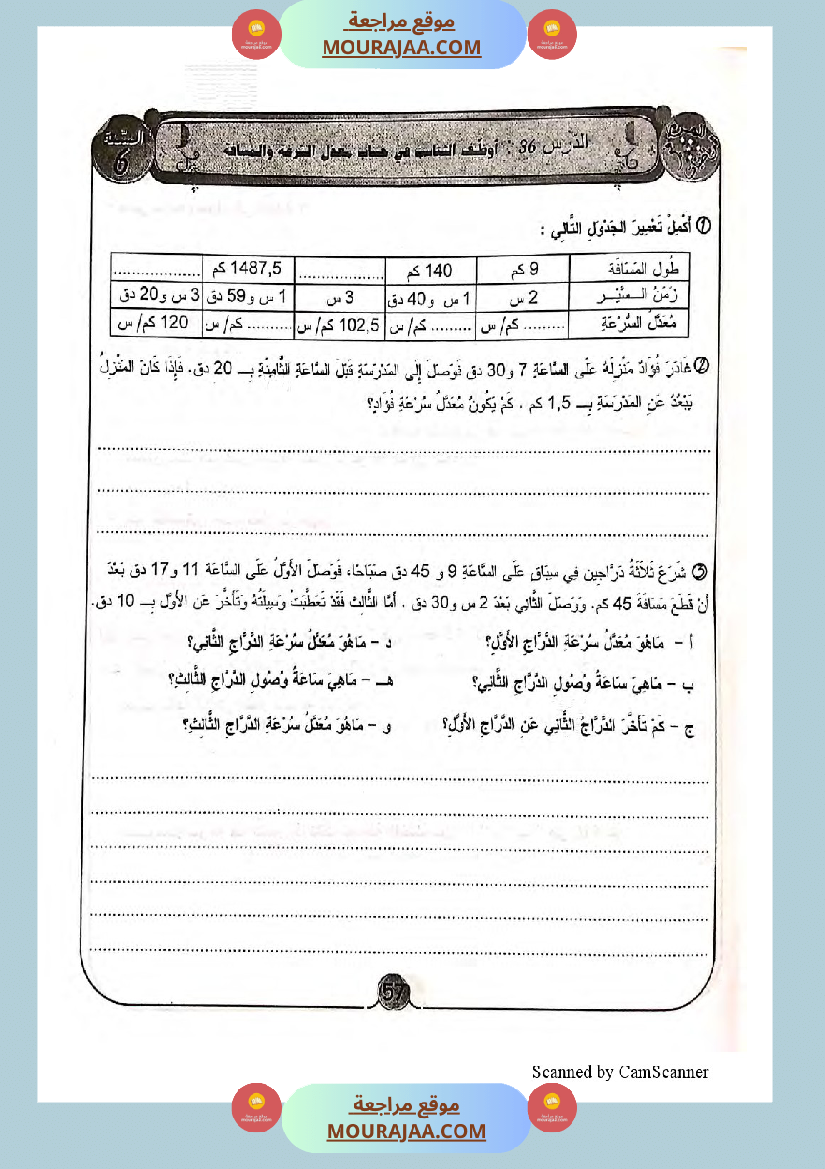 موقع مراجعة
MOURAJAA.COM
السنة 6
الدرس 36 : أوظف التناسب في حساب معدل السرعة والمسافة
① أُكْمِلُ تَعْمِيرَ الجَدْوَلِ التَّالِي :
طُول المَسَافَة | 9 كم | 140 كم | .................. | 1487,5 كم | ..................
زَمَنُ الـسَّـيْـر | 2 س | 1 س و40 دق | 3 س | 1 س و59 دق | 3 س و20 دق
مُعَدَّلُ السُّرْعَةِ | ......... كم/ س | ......... كم/ س | 102,5 كم/ س | .......... كم/ س | 120 كم/ س
② غَادَرَ فُؤَادٌ مَنْزِلَهُ عَلَى السَّاعَةِ 7 و30 دق فَوَصَلَ إِلَى المَدْرَسَةِ قَبْلَ السَّاعَةِ الثَّامِنَةِ بِـــ 20 دق. فَإِذَا كَانَ المَنْزِلُ
يَبْعُدُ عَنِ المَدْرَسَةِ بِـــ 1,5 كم . كَمْ يَكُونُ مُعَدَّلُ سُرْعَةِ فُؤَادٍ؟
③ شَرَعَ ثَلَاثَةُ دَرَّاجِين فِي سِبَاقٍ عَلَى السَّاعَةِ 9 و 45 دق صَبَاحًا، فَوَصَلَ الأَوَّلُ عَلَى السَّاعَة 11 و17 دق بَعْدَ
أَنْ قَطَعَ مَسَافَةَ 45 كم. وَوَصَلَ الثَّانِي بَعْدَ 2 س و30 دق . أَمَّا الثَّالِث فَقَدْ تَعَطَّبَتْ وَسِيلَتُهُ وَتَأَخَّرَ عَنِ الأَوَّلِ بِـــ 10 دق.
أ - مَاهُوَ مُعَدَّلُ سُرْعَةِ الدَّرَّاجِ الأَوَّلِ؟
د - مَاهُوَ مُعَدَّلُ سُرْعَةِ الدَّرَّاجِ الثَّانِي؟
ب - مَاهِيَ سَاعَةُ وُصُولِ الدَّرَّاجِ الثَّانِي؟
هـــ - مَاهِيَ سَاعَةُ وُصُولِ الدَّرَّاجِ الثَّالِثِ؟
ج - كَمْ تَأَخَّرَ الدَّرَّاجُ الثَّانِي عَنِ الدَّرَّاجِ الأَوَّلِ؟
و - مَاهُوَ مُعَدَّلُ سُرْعَةِ الدَّرَّاجِ الثَّالِثِ؟
57
Scanned by CamScanner
موقع مراجعة
MOURAJAA.COM